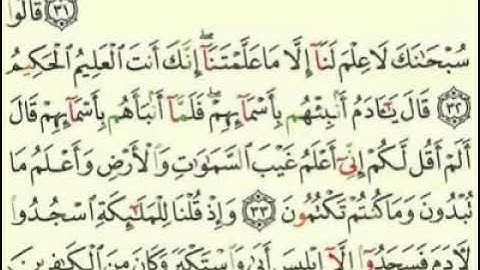 ﴿٣١﴾ قَالُوا۟
سُبْحَـٰنَكَ لَا عِلْمَ لَنَآ إِلَّا مَا عَلَّمْتَنَآ ۖ إِنَّكَ أَنتَ ٱلْعَلِيمُ ٱلْحَكِيمُ
﴿٣٢﴾ قَالَ يَـٰٓـَٔادَمُ أَنۢبِئْهُم بِأَسْمَآئِهِمْ ۖ فَلَمَّآ أَنۢبَأَهُم بِأَسْمَآئِهِمْ قَالَ
أَلَمْ أَقُل لَّكُمْ إِنِّىٓ أَعْلَمُ غَيْبَ ٱلسَّمَـٰوَٰتِ وَٱلْأَرْضِ وَأَعْلَمُ مَا
تُبْدُونَ وَمَا كُنتُمْ تَكْتُمُونَ ﴿٣٣﴾ وَإِذْ قُلْنَا لِلْمَلَـٰٓئِكَةِ ٱسْجُدُوا۟
لِـَٔادَمَ فَسَجَدُوٓا۟ إِلَّآ إِبْلِيسَ أَبَىٰ وَٱسْتَكْبَرَ وَكَانَ مِنَ ٱلْكَـٰفِرِينَ